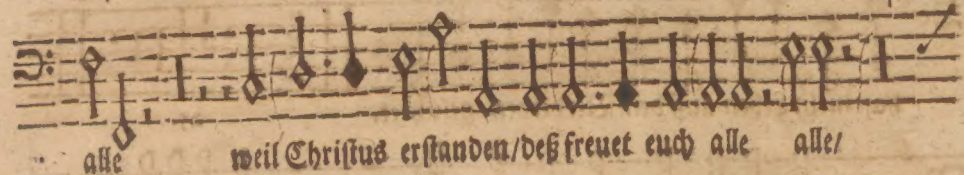 alle weil Chriſtus erſtanden/deß freuet euch alle alle/